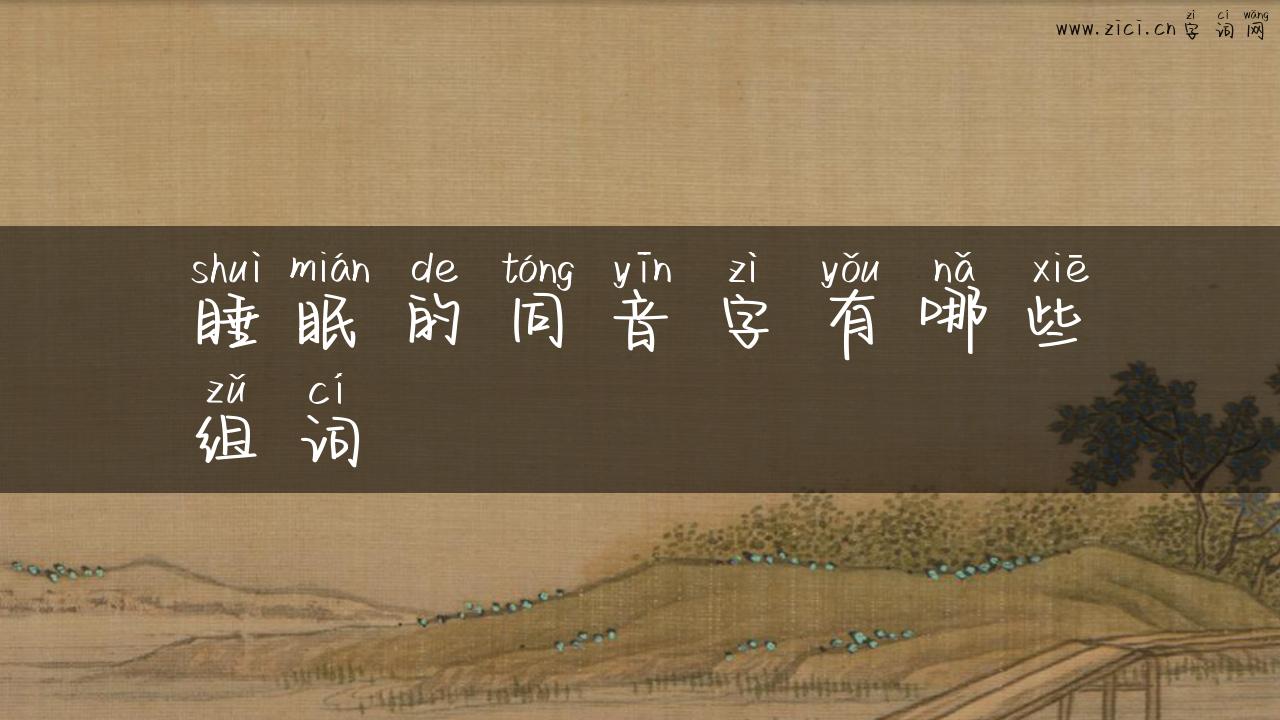 zì cí wǎng
www.zici.cn字词网
shuì mián de tóng yīn zì yǒu nǎ xiē
睡眠的同音字有哪些
zǔ cí
组词